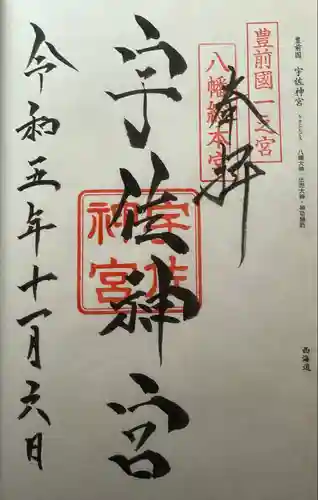 豊前國 宇佐神宮
八幡大神 比売大神・神功皇后
西海道
豊前國一之宮
八幡総本宮
奉拝
宇佐神宮
宇佐神宮
令和五年十一月六日